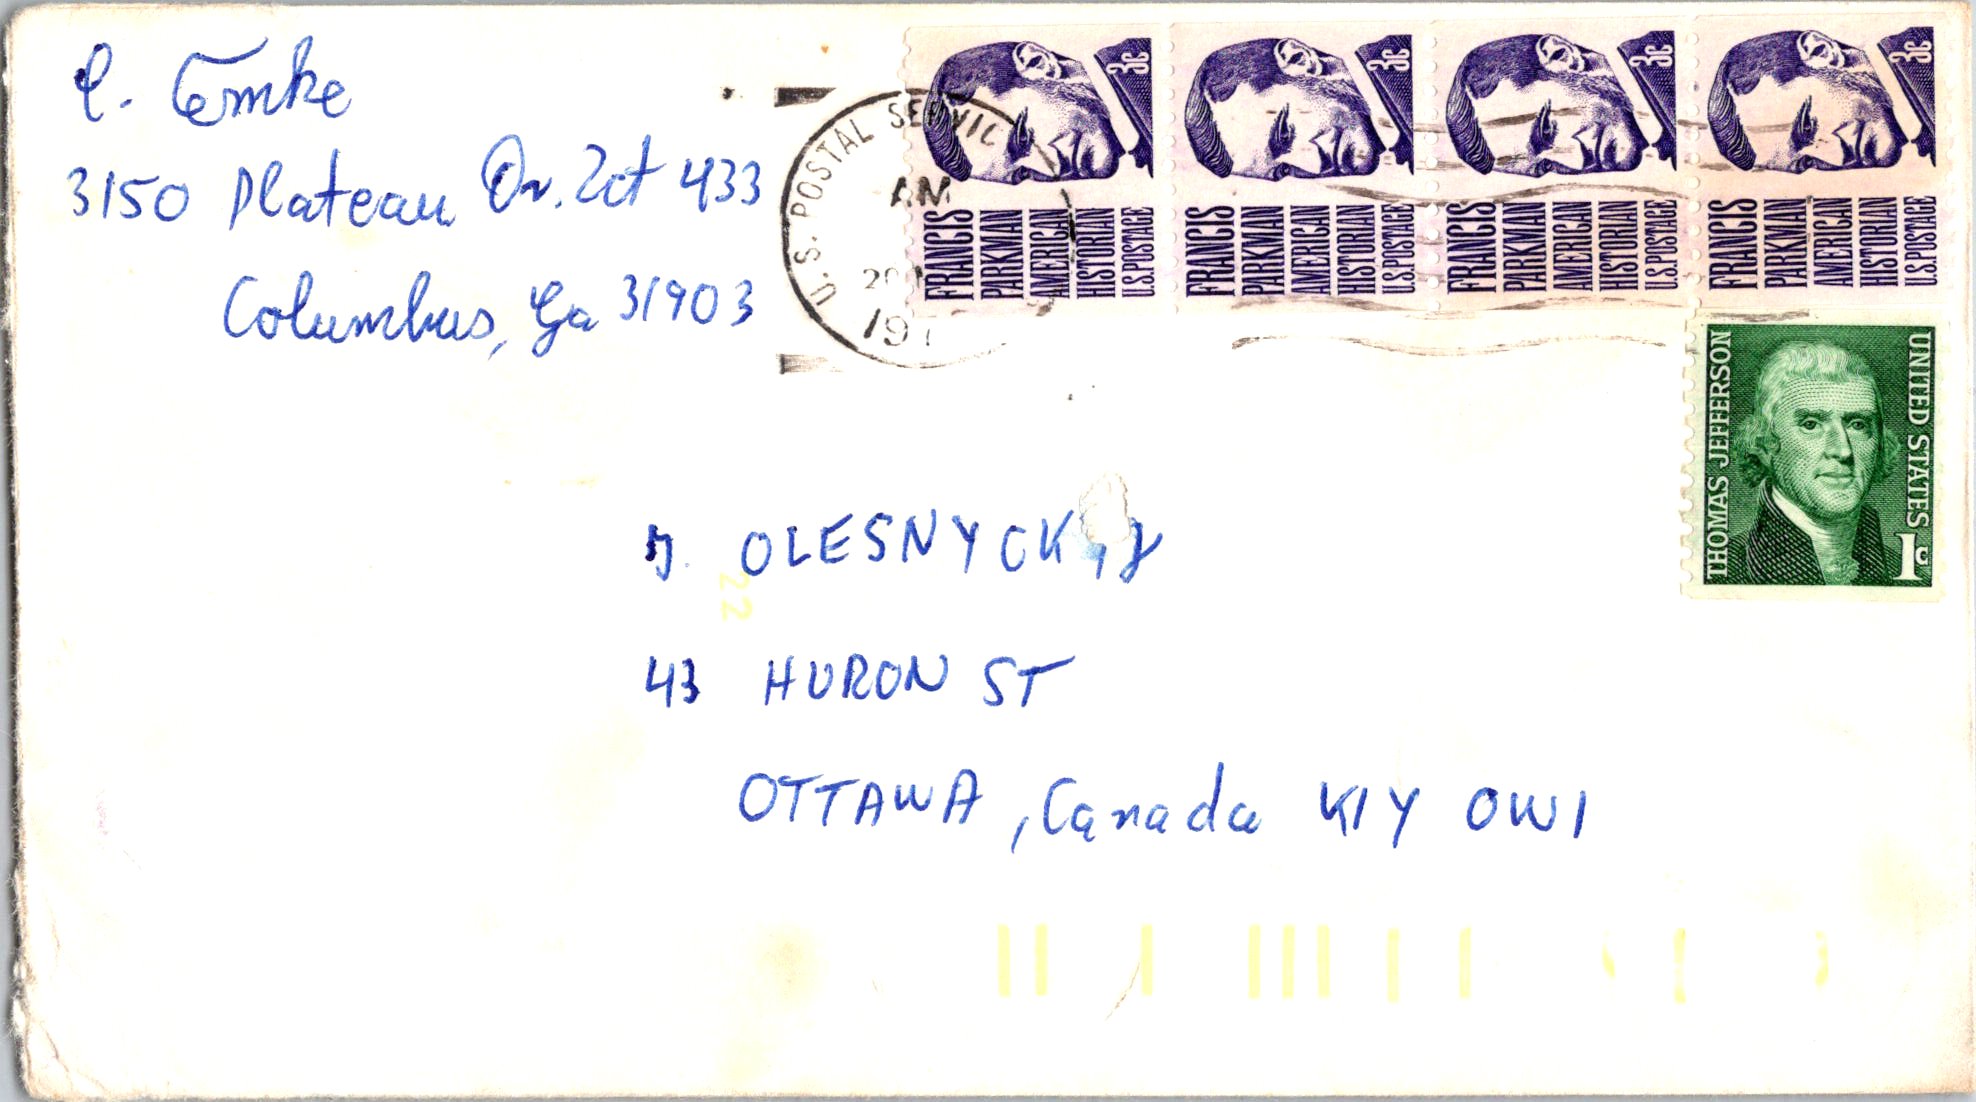 3150 Plateau Dr. Lot 433
Columbus, Ga 31903
U.S. POSTAL SERVIC
AM
20
197
3c
FRANCIS
PARKMAN
AMERICAN
HISTORIAN
U.S.POSTAGE
3c
FRANCIS
PARKMAN
AMERICAN
HISTORIAN
U.S.POSTAGE
3c
FRANCIS
PARKMAN
AMERICAN
HISTORIAN
U.S.POSTAGE
3c
FRANCIS
PARKMAN
AMERICAN
HISTORIAN
U.S.POSTAGE
THOMAS JEFFERSON
UNITED STATES
1c
OLESNYCKYJ
22
43 HURON ST
OTTAWA, Canada K1Y OW1